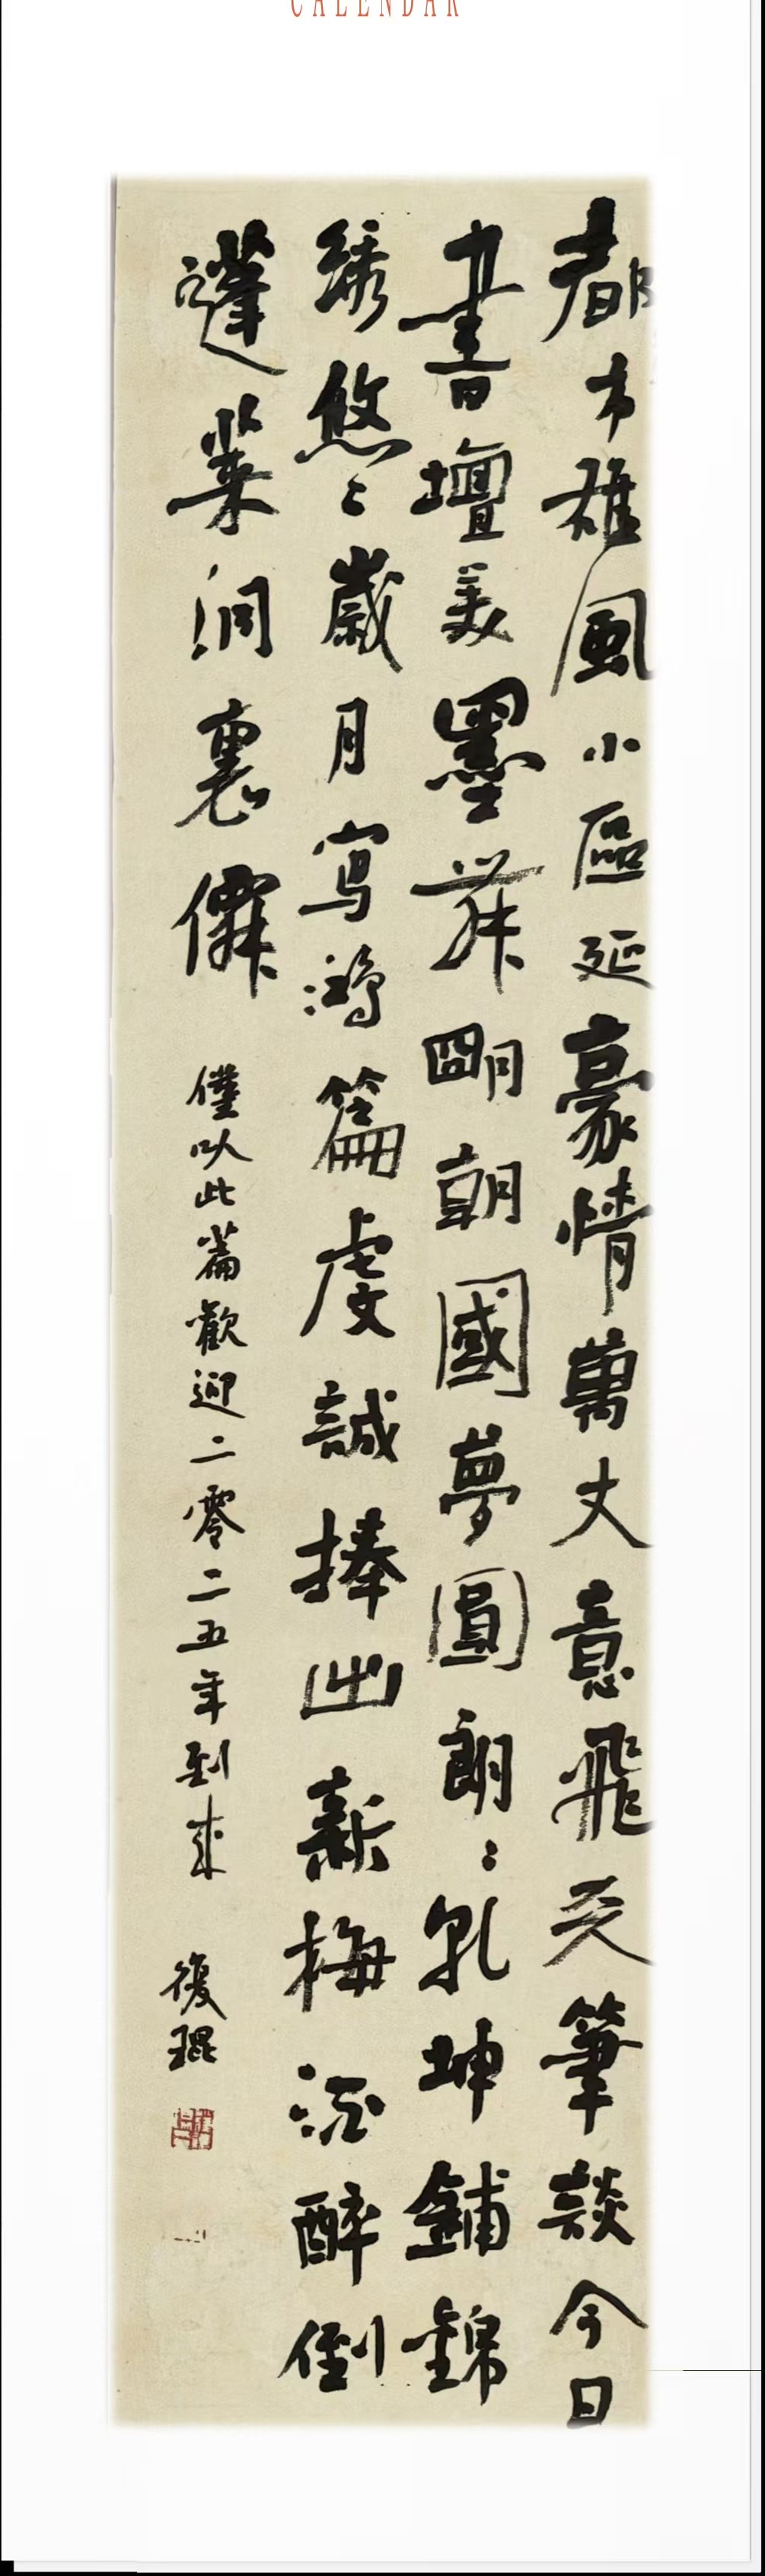 CALENDAR
都市雄風小區延豪情萬丈意飛天筆談今日
書壇美墨舞明朝國夢圓朗〻乾坤鋪錦
綉悠〻歲月寫鴻篇虔誠捧出新梅酒醉倒
蓬萊洞裏僊
僅以此篇歡迎二零二五年到來
復琨